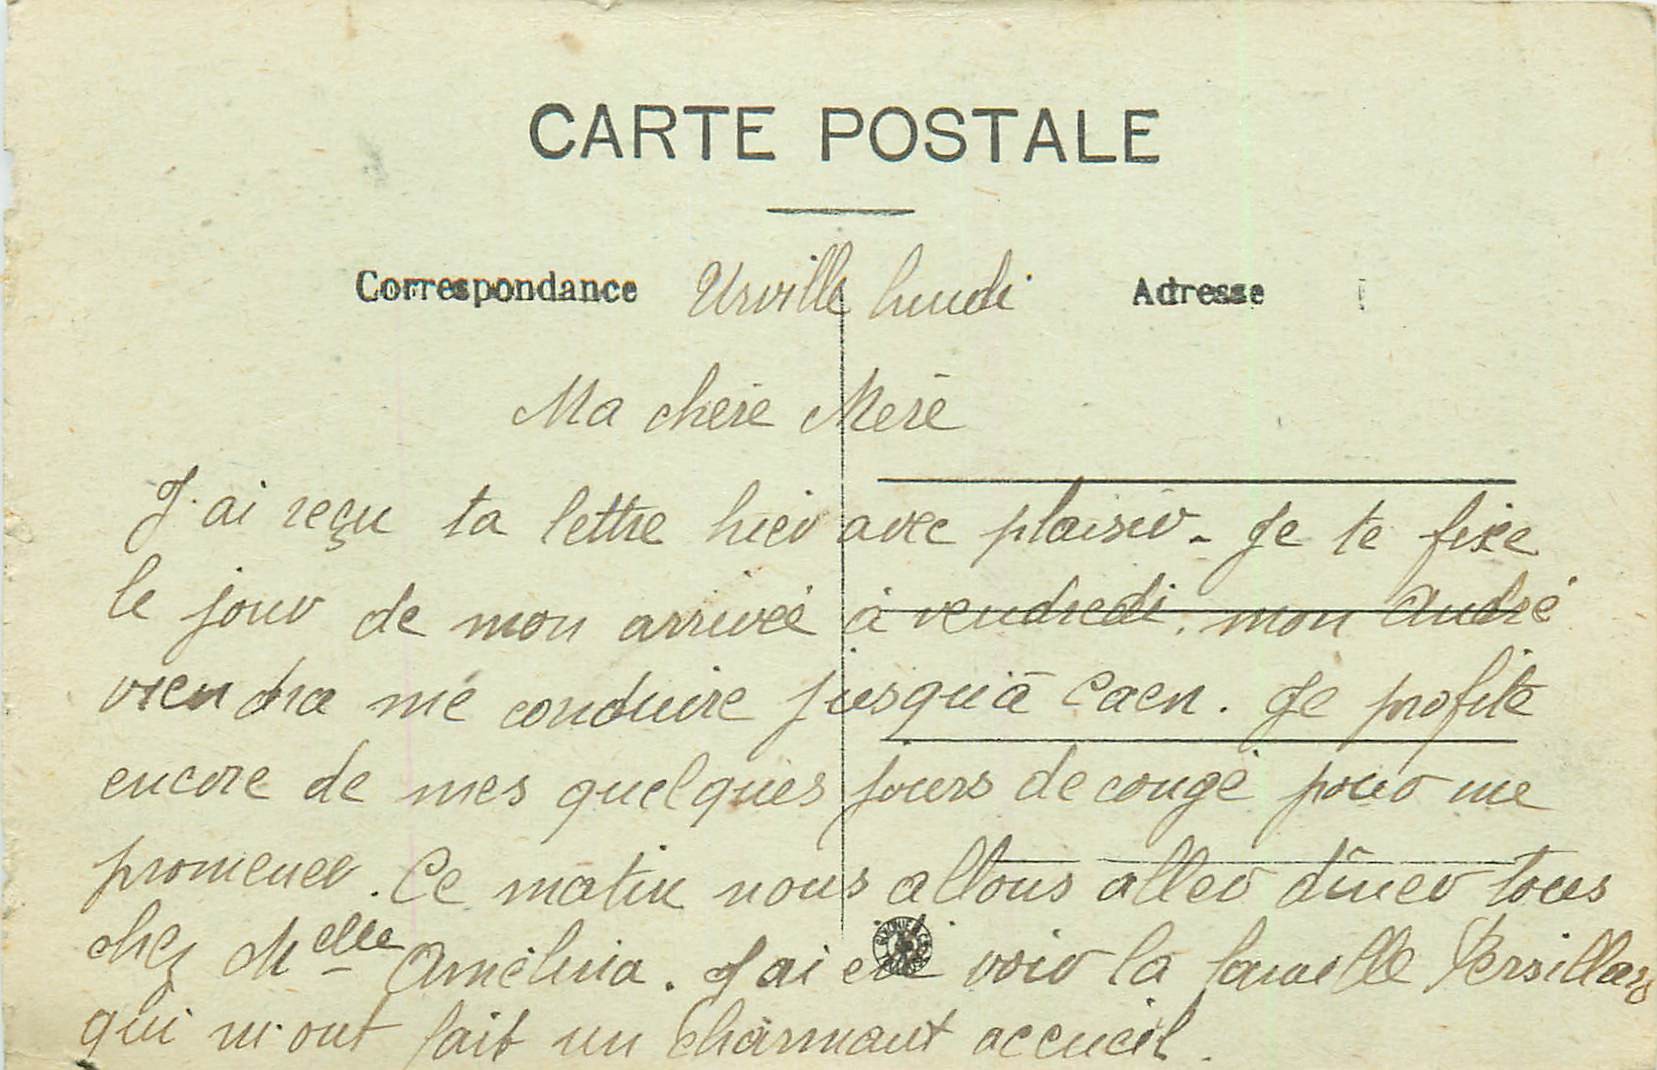 CARTE POSTALE
Correspondance Urville lundi Adresse
Ma chère Mère
J'ai reçu ta lettre hier avec plaisir - Je te fixe
le jour de mon arrivée à vendredi. mon André
viendra me conduire jusqu'à Caen. Je profite
encore de mes quelques jours de congé pour me
promener. Ce matin nous allons aller dîner tous
chez Melle Amélina. J'ai été voir la famille Persillard
qui m'ont fait un charmant accueil.